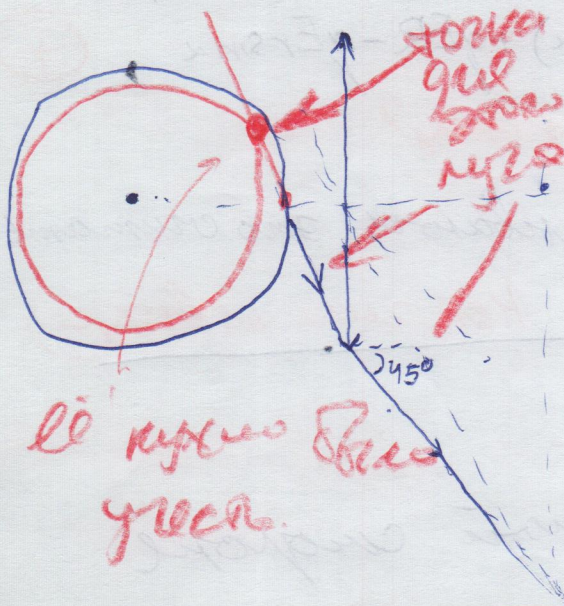 точка
для
этого
луча
45°
её нужно было
учесть.